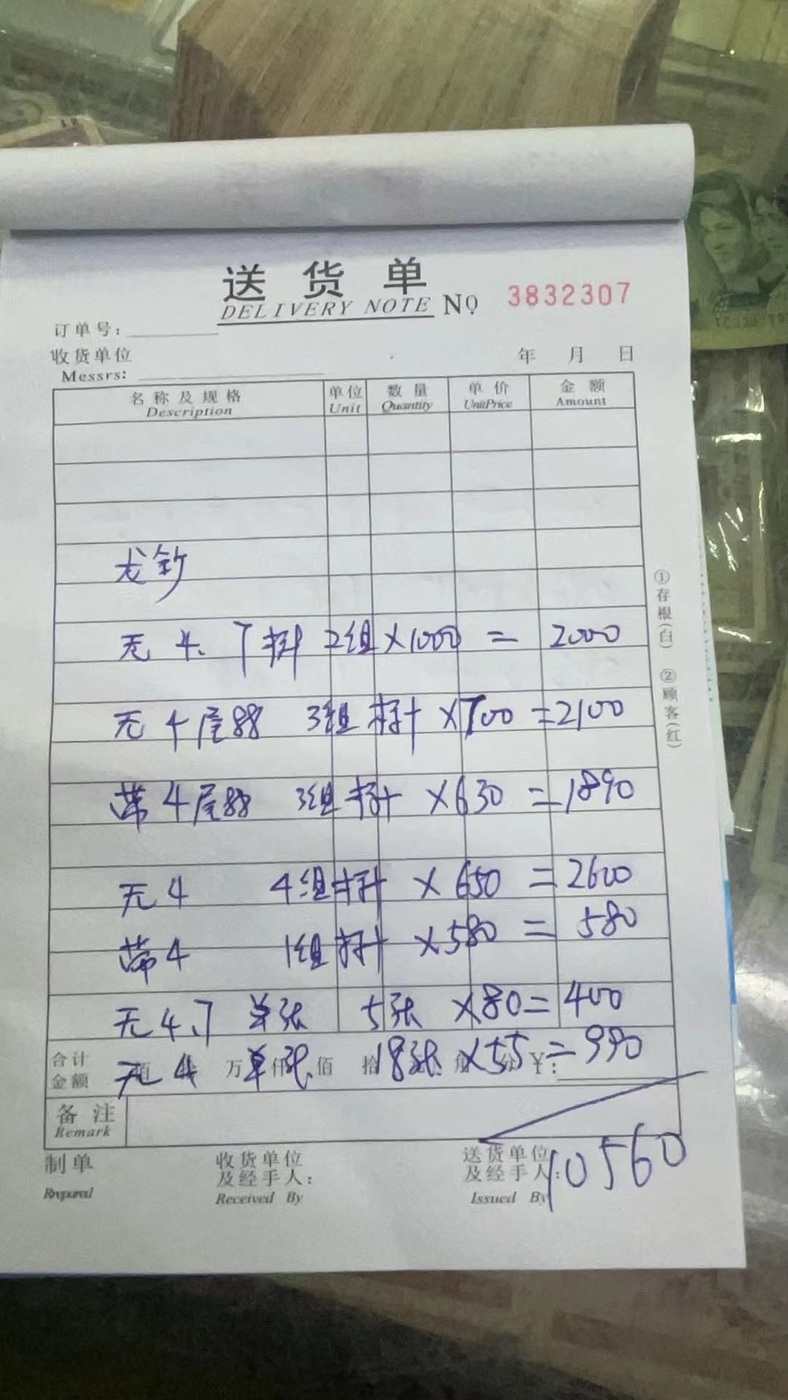 送货单
DELIVERY NOTE № 3832307
订单号：
收货单位
Messrs:
年 月 日
名称及规格 单位 数量 单价 金额
Description Unit Quantity UnitPrice Amount
龙钞
无4、7 2组×1000 = 2000
无4尾88 3组 ×700 =2100
带4尾88 3组 ×630 =1890
无4 4组 ×650 =2600
带4 1组 ×580 = 580
无4.7 单张 5张 ×80= 400
无4 单张 18张 ×55= 990
合计
金额 佰 万 仟 佰 拾 角 分 ¥:
备注
Remark
10560
制单
Prepared
收货单位
及经手人：
Received By
送货单位
及经手人：
Issued By
①存根（白） ②顾客（红）